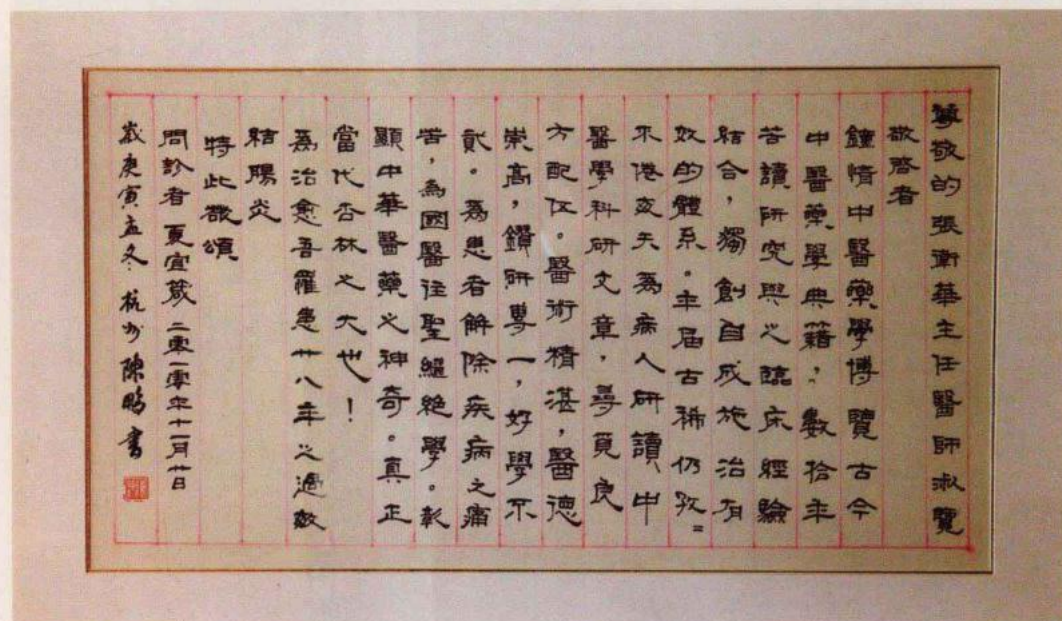 尊敬的張衛華主任醫師淑覽
敬啓者
鐘情中醫藥學博覽古今
中醫藥學典籍，數拾年
苦讀研究與之臨床經驗
結合，獨創自成施治有
效的體系。年屆古稀仍孜=
不倦天為病人研讀中
醫學科研文章，尋覓良
方配伍。醫術精湛，醫德
崇高，鑽研專一，好學不
貳。為患者解除疾病之痛
苦，為國醫往聖繼絕學。彰
顯中華醫藥之神奇。真正
當代杏林之大也！
為治愈吾罹患廿八年之過敏
結腸炎
特此敬頌
問診者 夏宜葳 二零一零年十一月廿日
歲庚寅孟冬 杭州陳鵬書